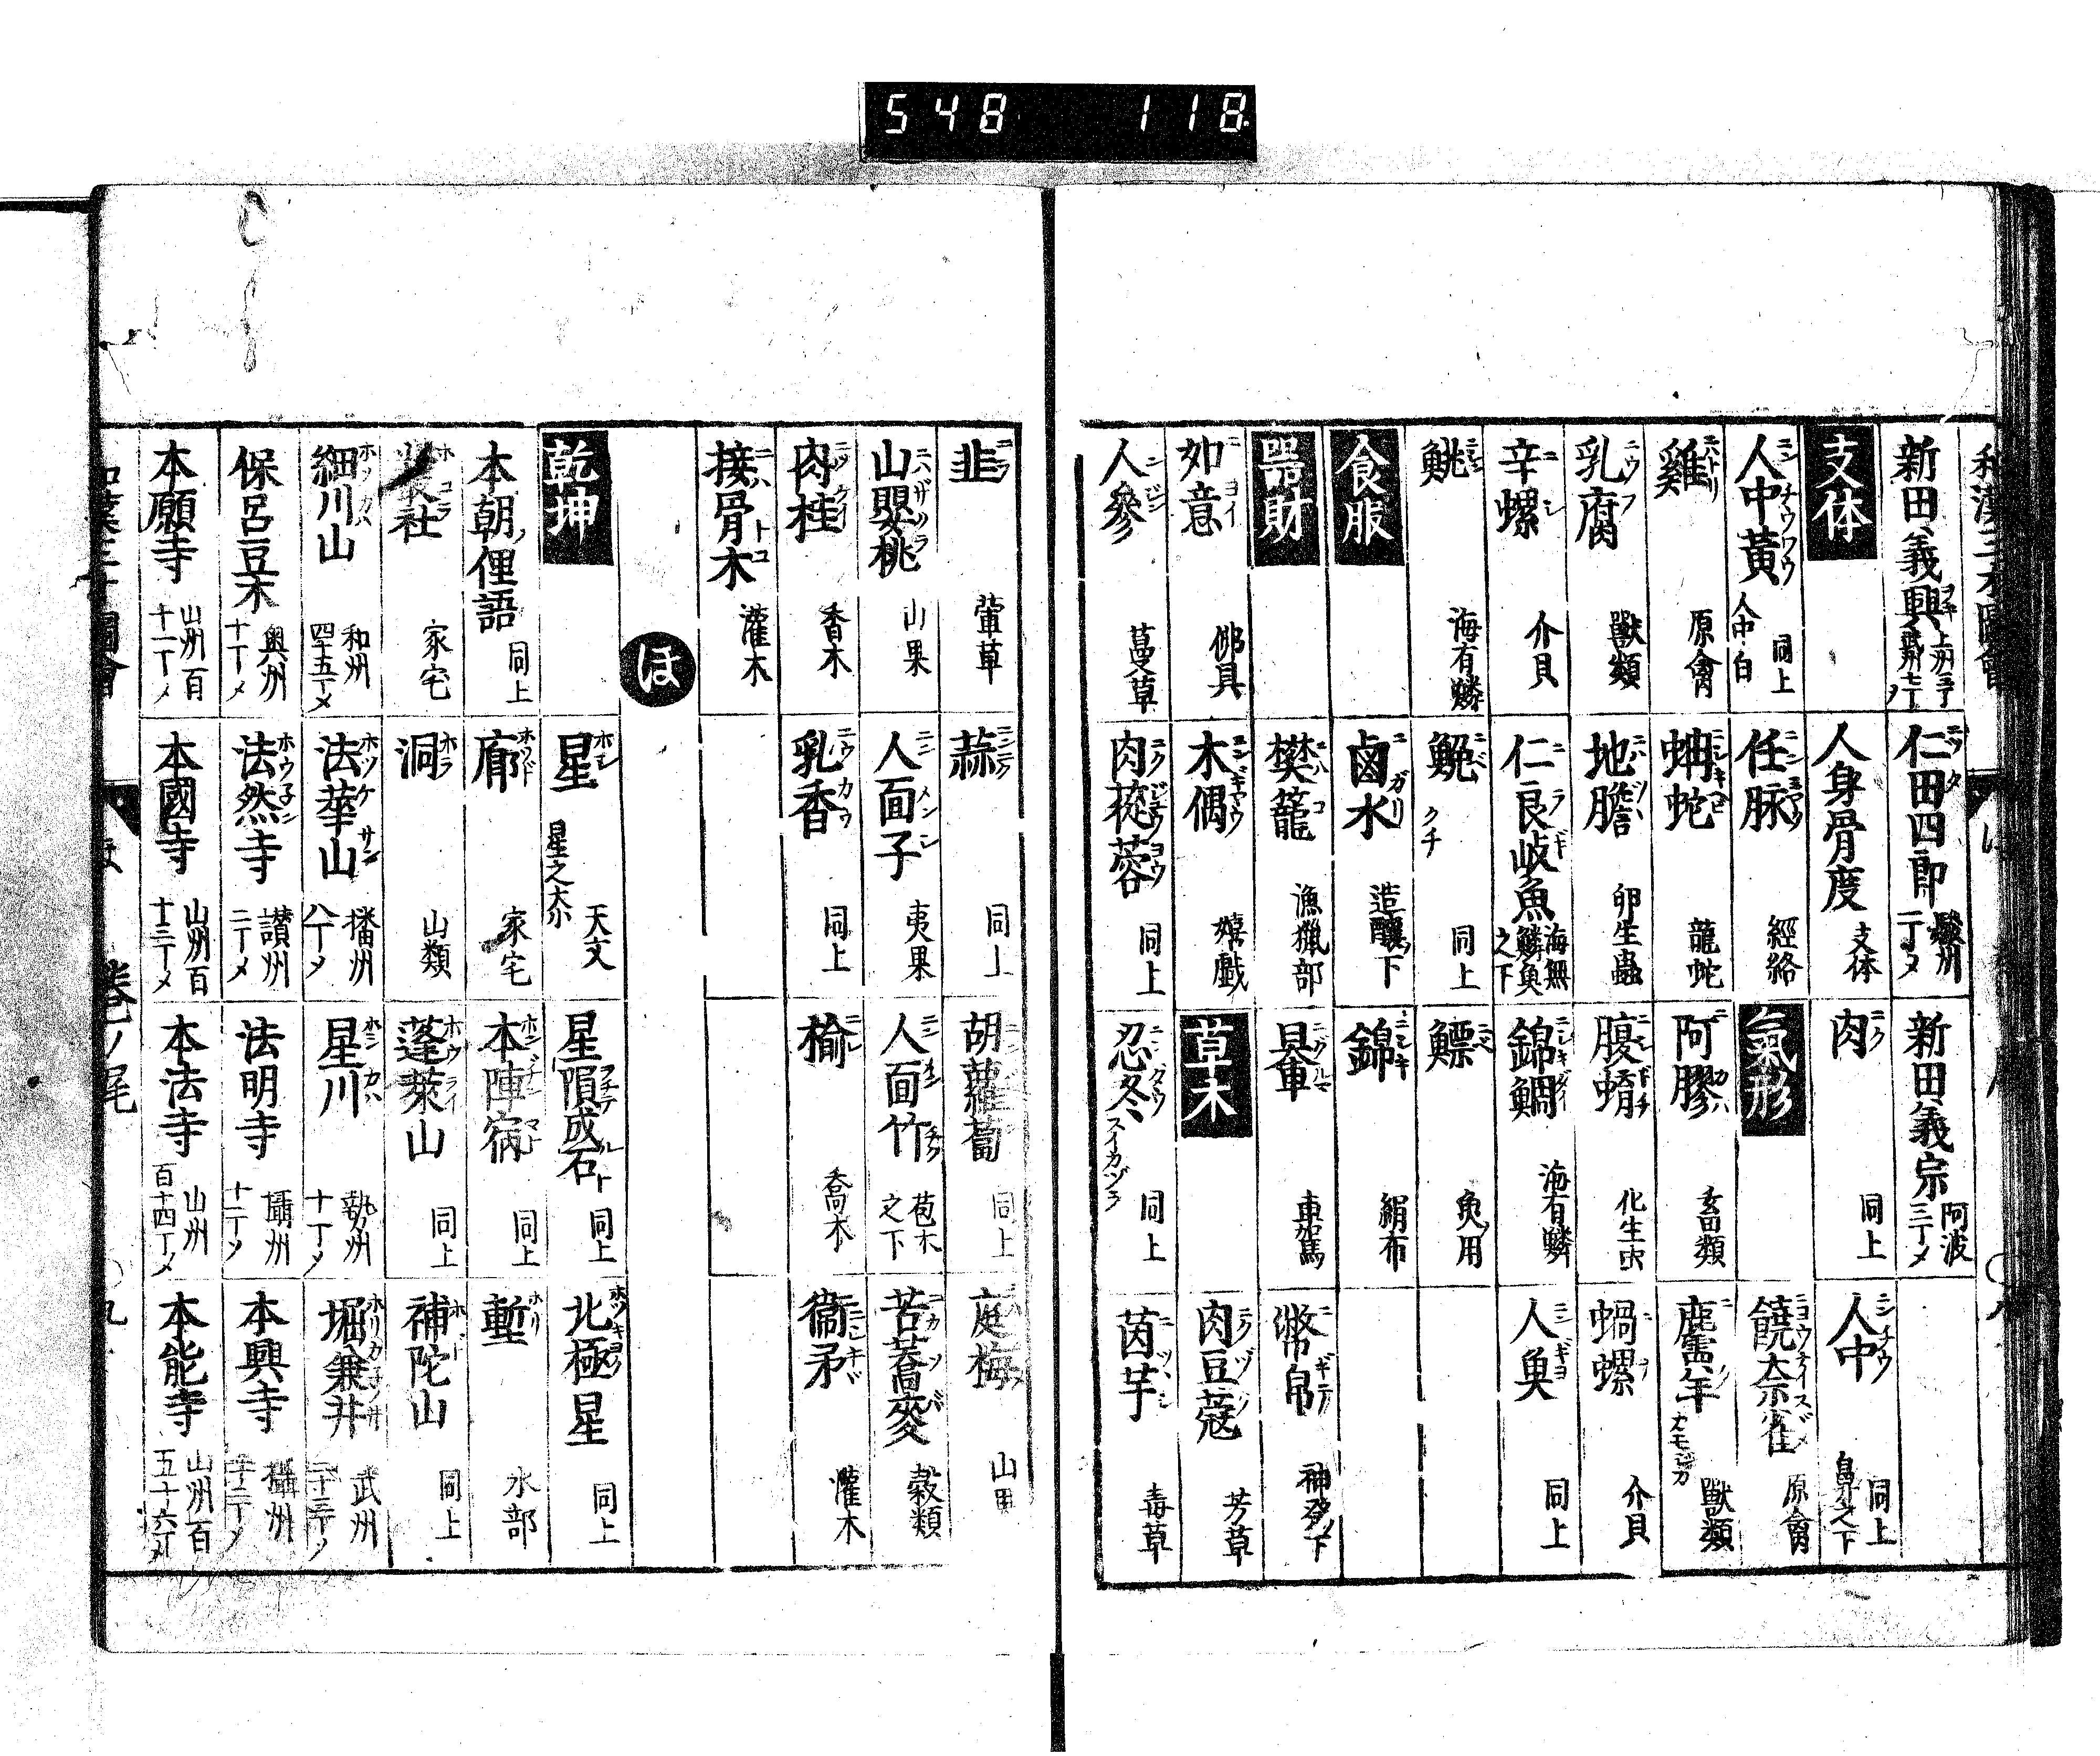 548 118
新田義興
仁田四郎 駿州 二丁メ
新田義宗 阿波 三丁メ
支体
人身骨度 支体
肉 同上
人中 同上 鼻之下
人中黃 同上 人中白
任脉 經絡
氣形
饒奈雀 原禽
雞 原禽
蚺蛇 龍蛇
阿膠 畜類
麢羊 獸類
乳腐 獸類
地膽 卵生蟲
腹蜟 化生虫
蝸螺 介貝
辛螺 介貝
仁良岐魚 海無鱗魚之下
錦鯛 海有鱗
人魚 同上
鮡 海有鱗
鮸 クチ 同上
鰾 魚ノ用
食服
鹵水 造釀ノ下
錦 絹布
噐財
樊籠 漁獵部
轝車 車駕
幣帛 神祭ノ下
如意 佛具
木偶 嬉戲
草木
肉豆蔻 芳草
人參 蔓草
肉蓯蓉 同上
忍冬 スイカヅラ 同上
茵芋 毒草
韭 葷草
蒜 同上
胡蘿蔔 同上
庭梅
山嬰桃 山果
人面子 夷果
人面竹 苞木之下
苦蕎麥 穀類
肉桂 香木
乳香 同上
楡 喬木
衞矛 灌木
接骨木 灌木
ほ
乾坤
星 天文 星之柰
星隕成石 同上
北極星 同上
本朝ノ俚語 同上
廊 家宅
本陣病 同上
塹 水部
社 家宅
洞 山類
蓬萊山 同上
補陀山 同上
細川山 和州 四十五丁メ
法華山 播州 八丁メ
星川 勢州 十丁メ
堀兼井 武州
保呂豆木 奥州 十丁メ
法然寺 讃州 二丁メ
法明寺 攝州 十二丁メ
本興寺 攝州
本願寺 山州百十一丁メ
本國寺 山州百十三丁メ
本法寺 山州百十四丁メ
本能寺 山州百五十六丁メ